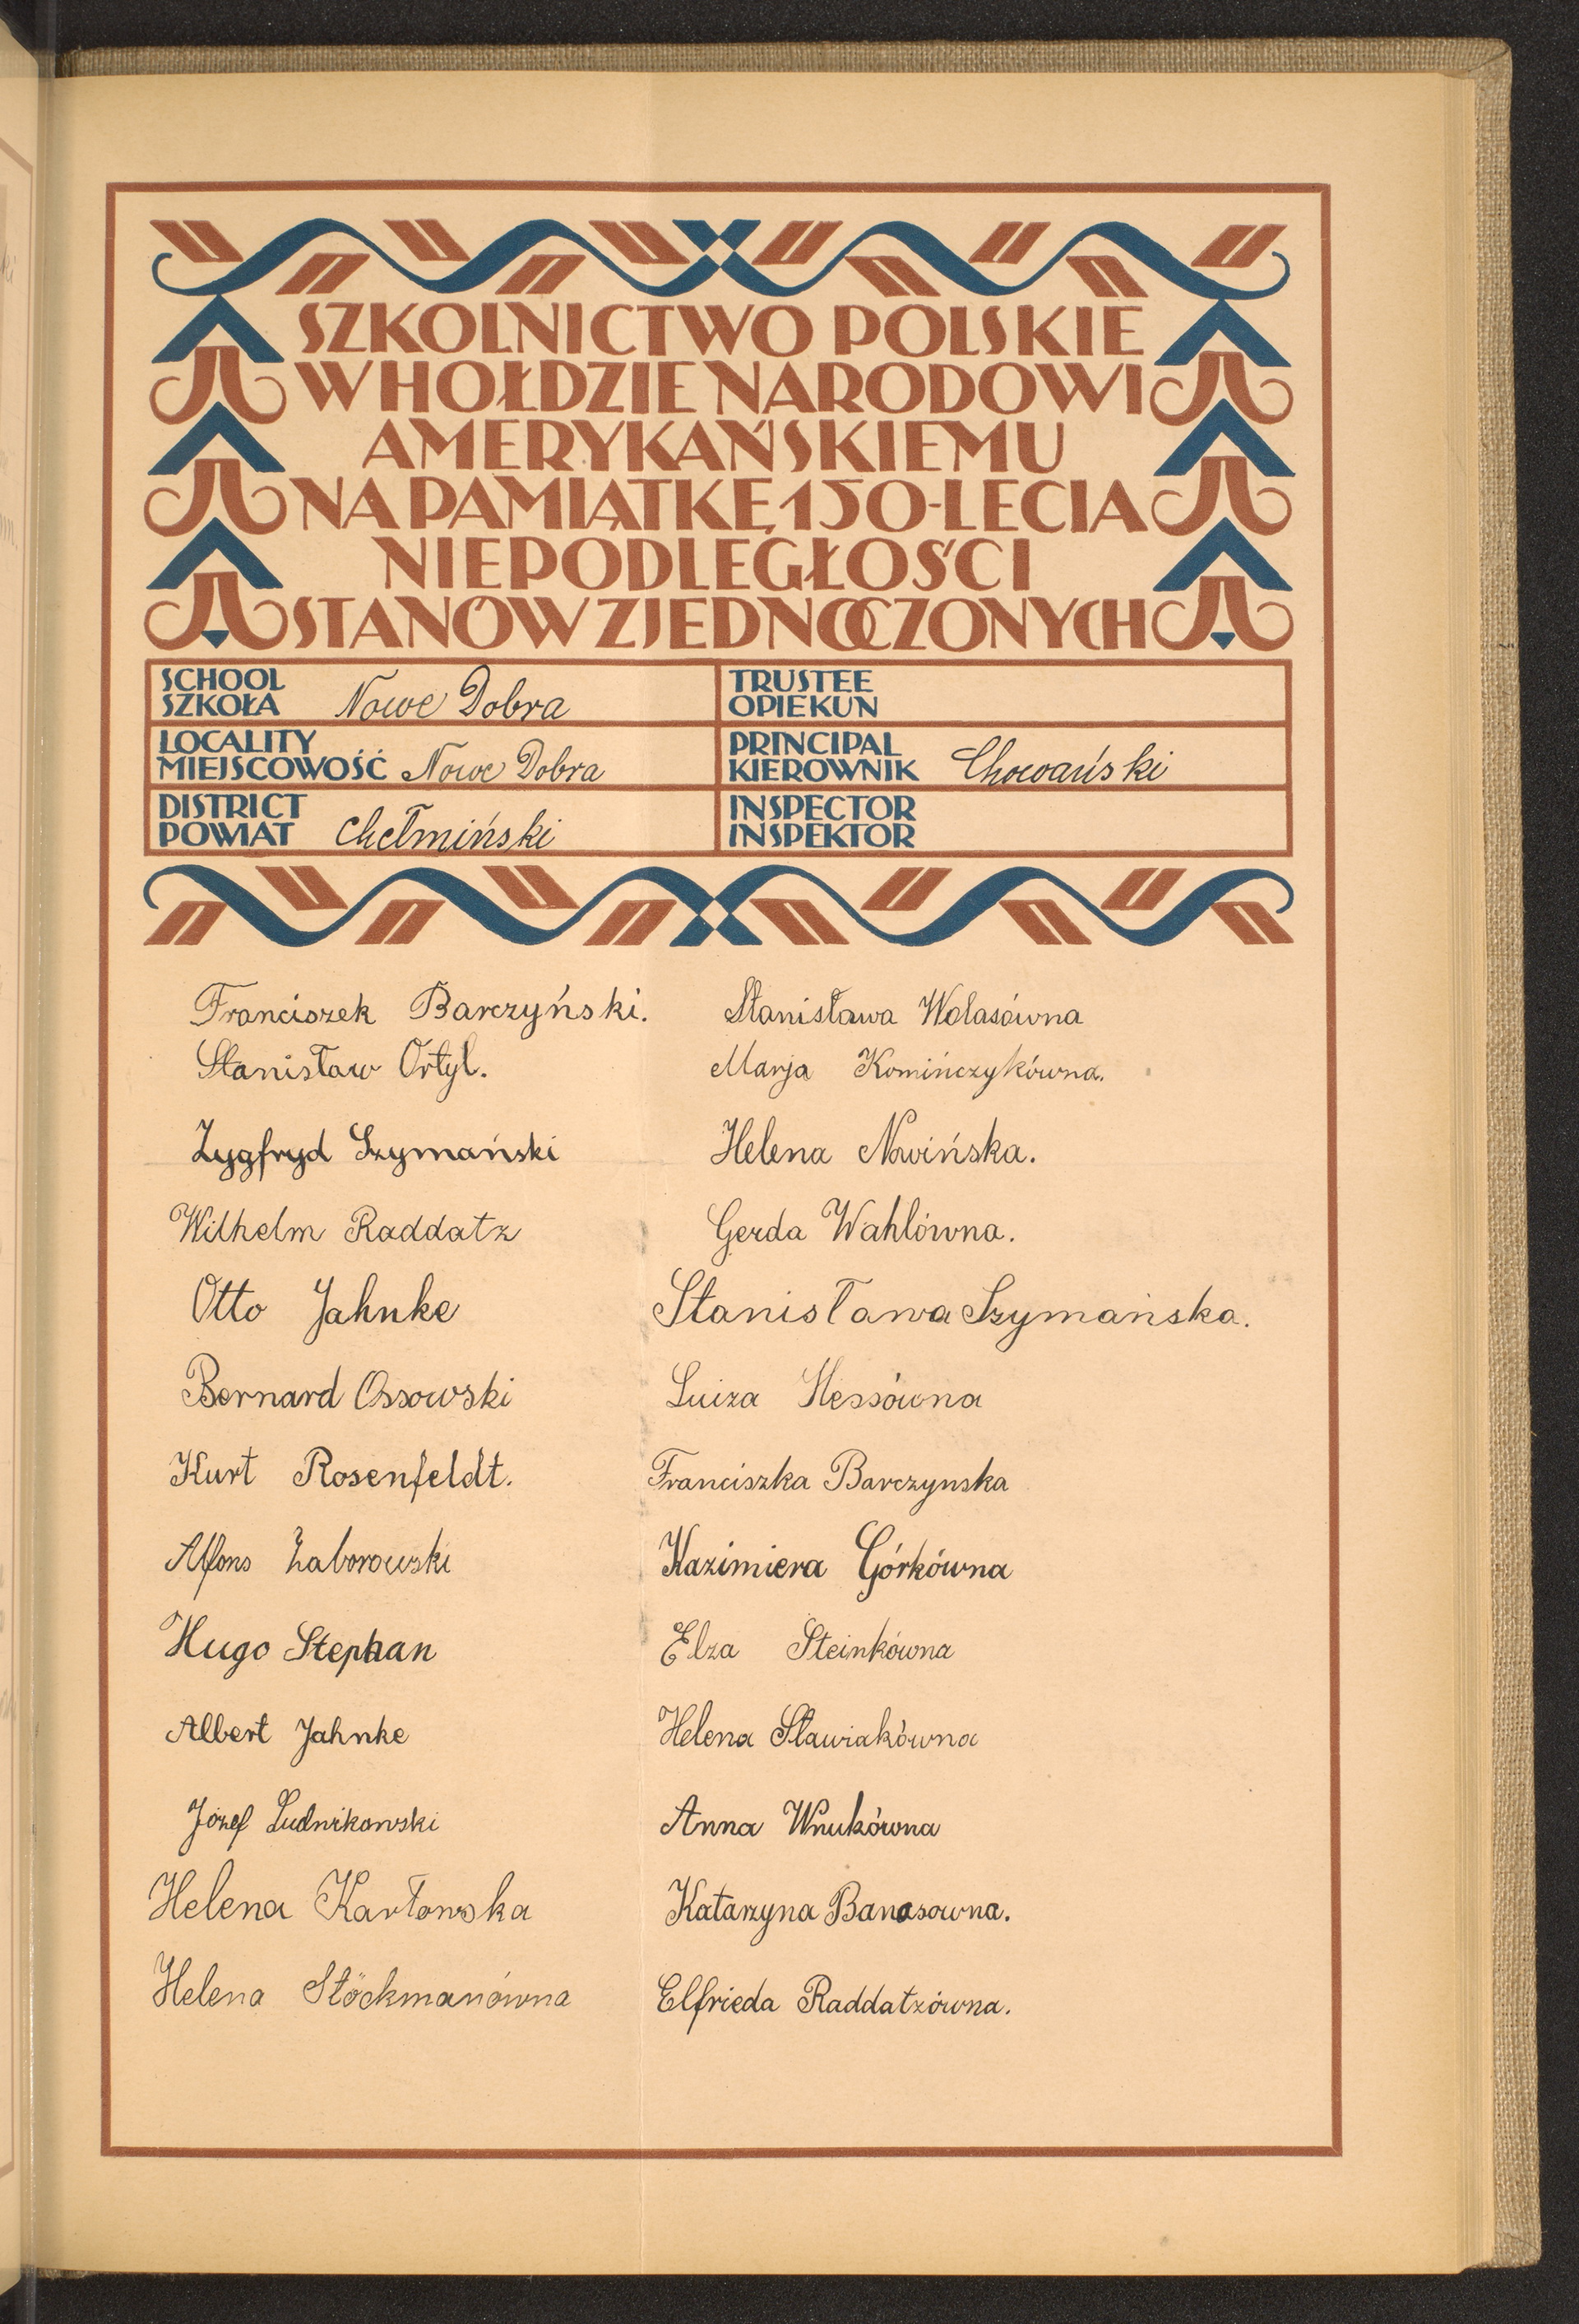 SZKOLNICTWO POLSKIE
W HOŁDZIE NARODOWI
AMERYKAŃSKIEMU
NA PAMIĄTKĘ 150-LECIA
NIEPODLEGŁOŚCI
STANÓW ZJEDNOCZONYCH
SCHOOL
SZKOŁA Nowe Dobra
TRUSTEE
OPIEKUN
LOCALITY
MIEJSCOWOŚĆ Nowe Dobra
PRINCIPAL
KIEROWNIK Chowański
DISTRICT
POWIAT Chełmiński
INSPECTOR
INSPEKTOR
Franciszek Barczyński.
Stanisław Ortyl.
Zygfryd Szymański
Wilhelm Raddatz
Otto Jahnke
Bernard Ossowski
Kurt Rosenfeldt.
Alfons Zaborowski
Hugo Stephan
Albert Jahnke
Józef Ludnikowski
Helena Karłowska
Helena Stöckmanówna
Stanisława Wolasówna
Marja Komińczykówna.
Helena Nowińska.
Gerda Wahlówna.
Stanisława Szymańska.
Luiza Hessówna
Franciszka Barczynska
Kazimiera Górkówna
Elza Steinkówna
Helena Sławiakówna
Anna Wnukówna
Katarzyna Banasowna.
Elfrieda Raddatzówna.